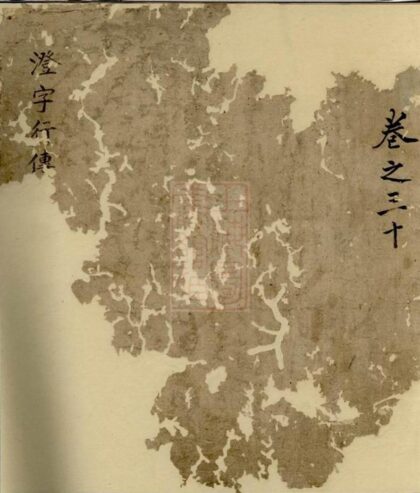 卷之三十
澄字行傳